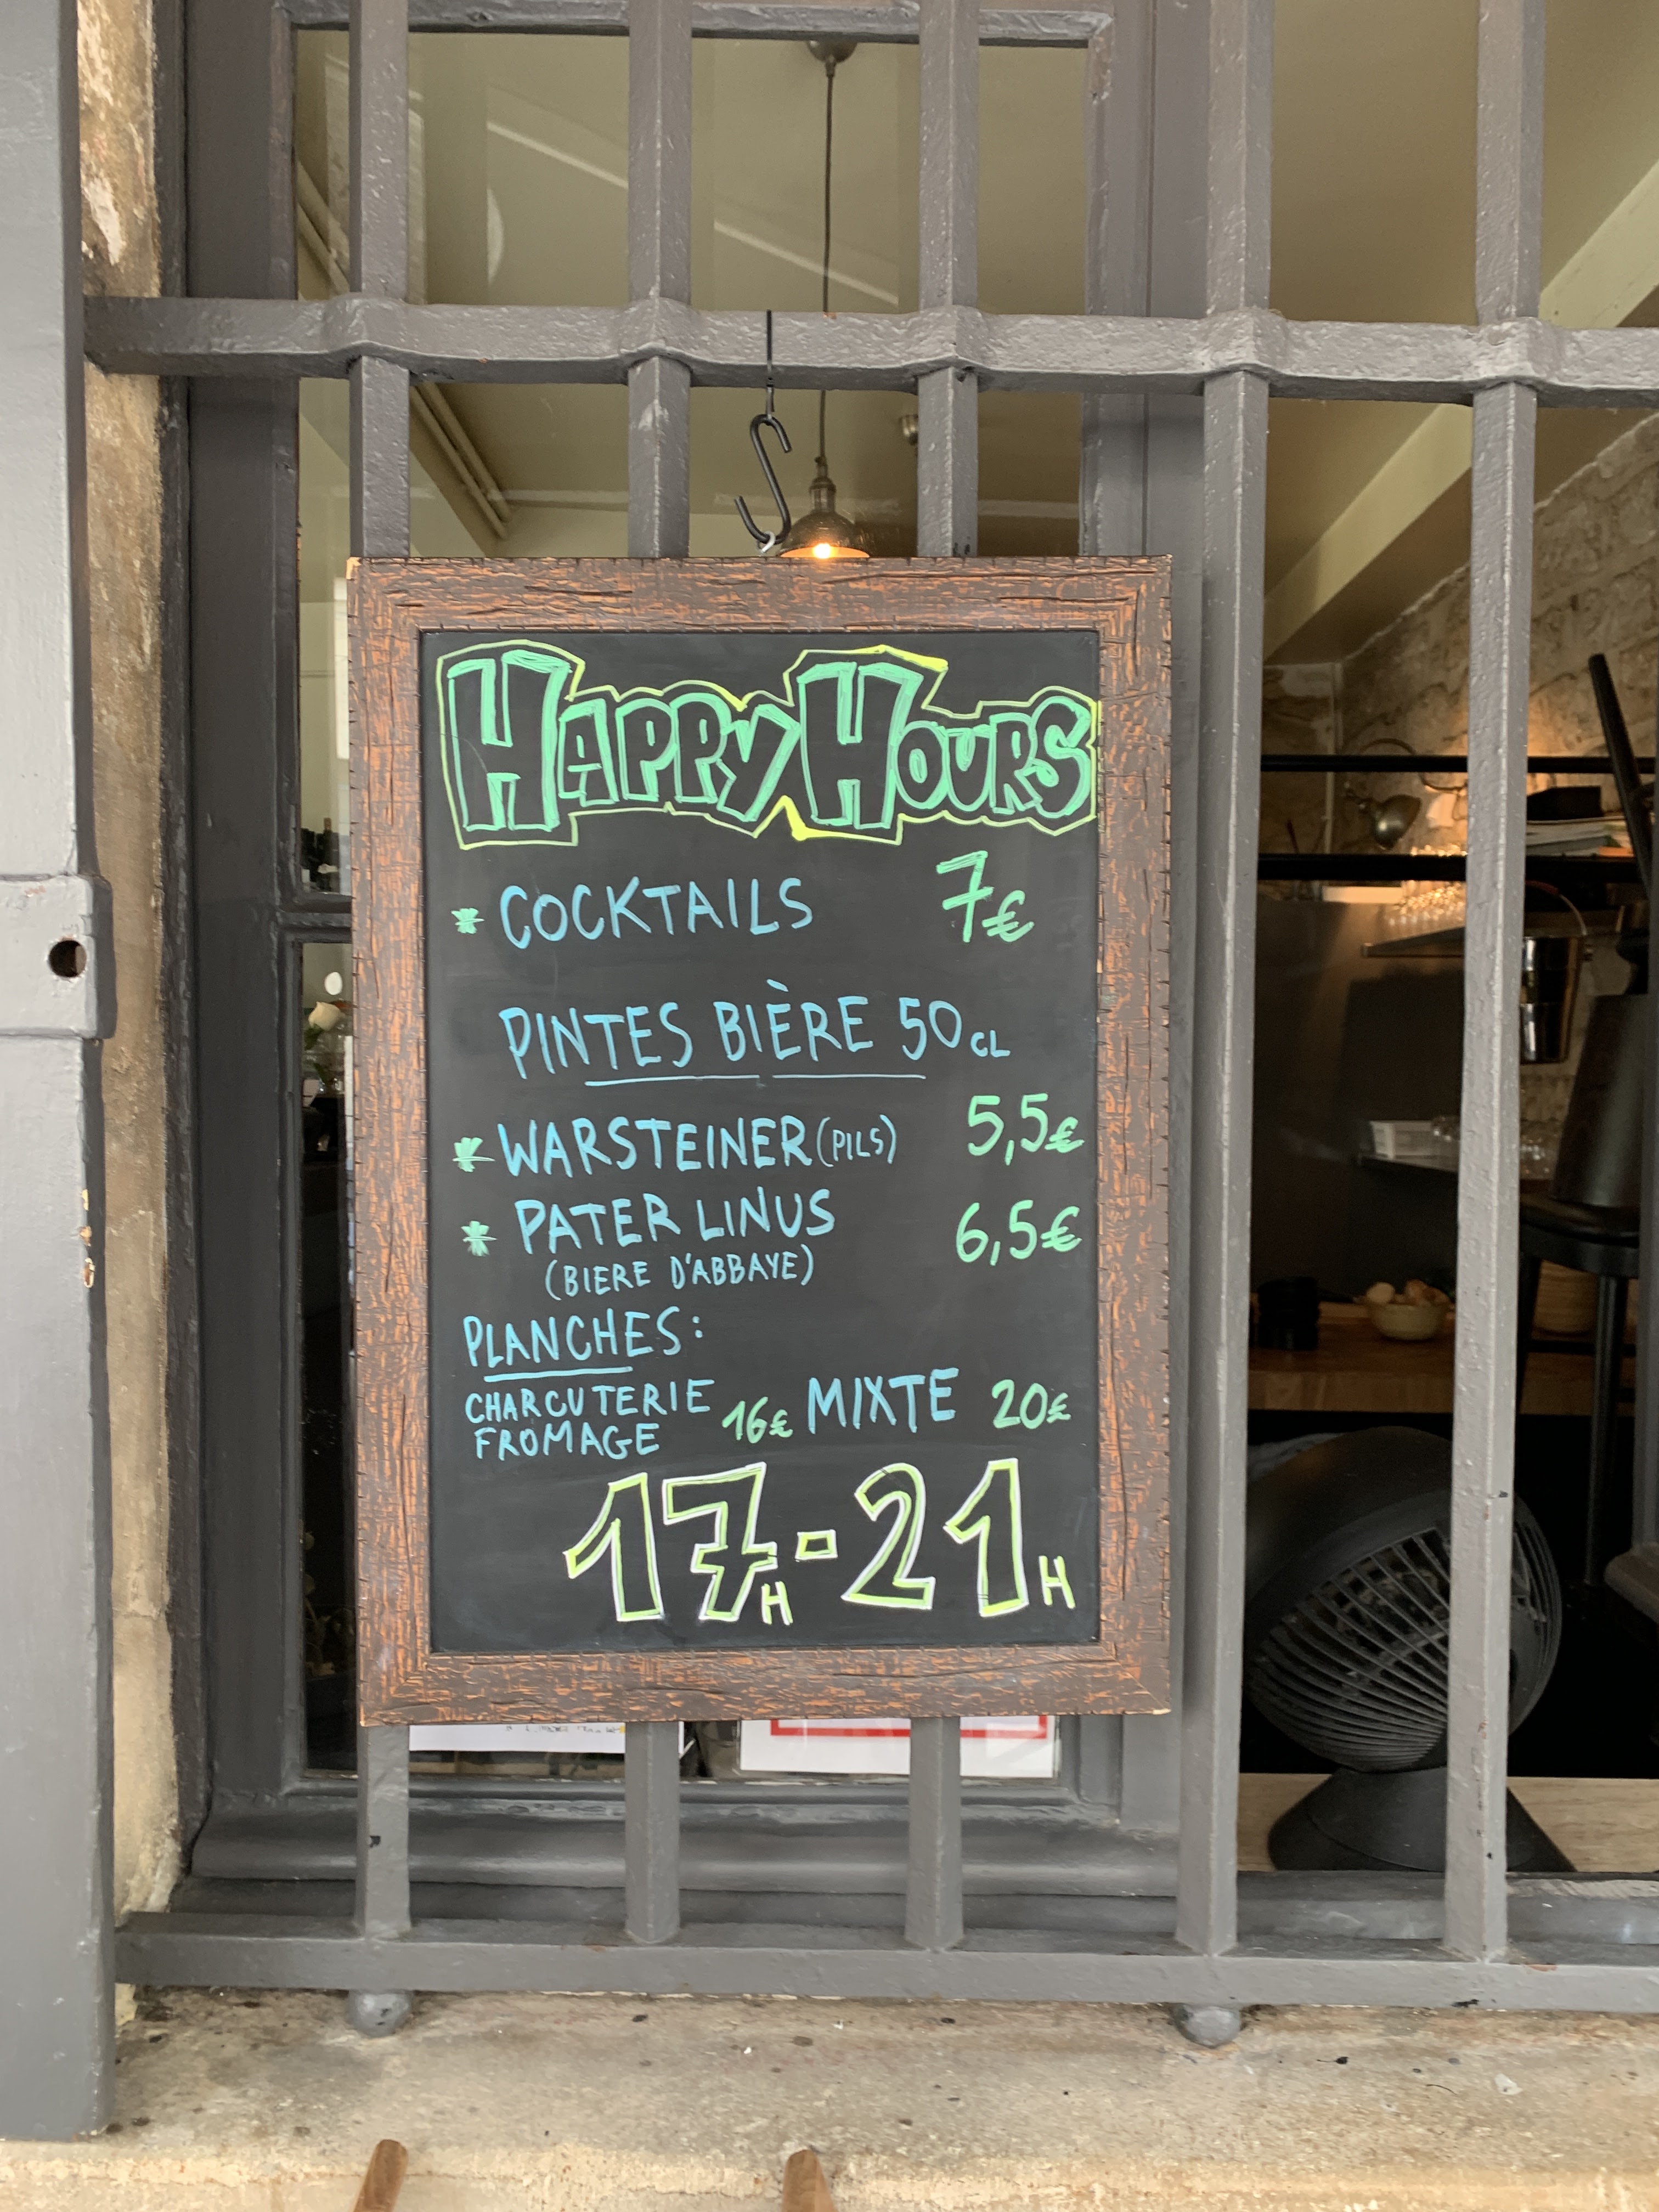 HAPPY HOURS
* COCKTAILS 7€
PINTES BIÈRE 50CL
* WARSTEINER (PILS) 5,5€
* PATER LINUS 6,5€
(BIERE D'ABBAYE)
PLANCHES:
CHARCUTERIE 16€ MIXTE 20€
FROMAGE
17H-21H